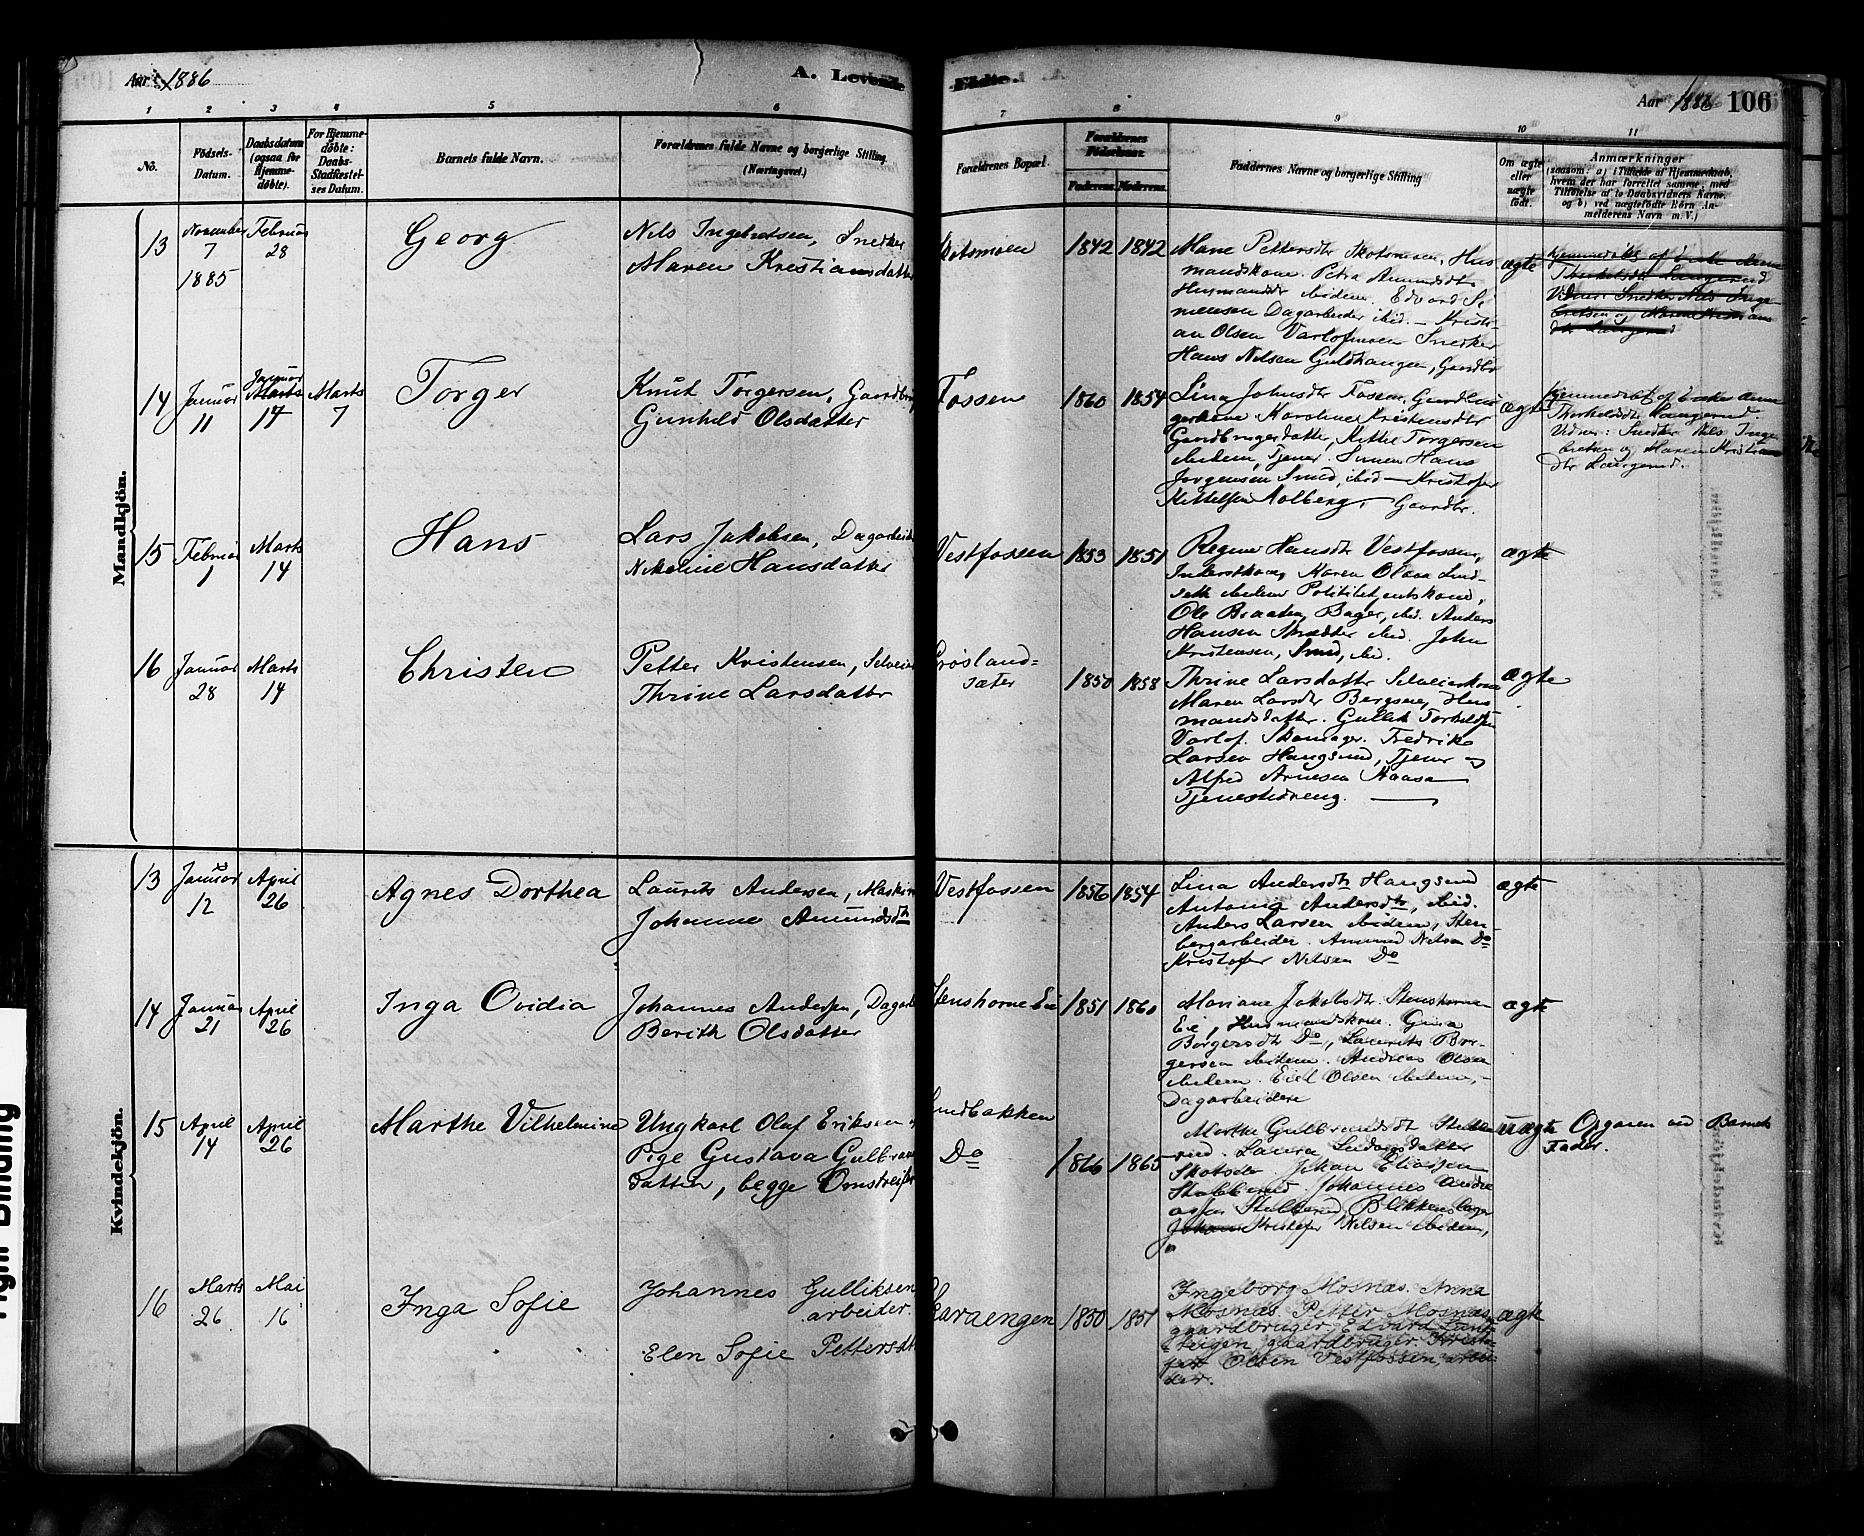 Aar 1886
A. Levende
Fødte.
Aar 1886
106
1 2 3 4 5 6
7 8 9 10 11
No.
Fødsels-
Datum.
Daabsdatum
(ogsaa for
Hjemme-
døbte).
For Hjemme-
døbte:
Daabs-
Stadfæstel-
ses Datum.
Barnets fulde Navn.
Forældrenes fulde Navne og borgerlige Stilling.
(Næringsvei.)
Forældrenes Bopæl.
Forældrenes
Fødselsaar.
Faderens. Moderens.
Faddernes Navne og borgerlige Stilling
Om ægte
eller
uægte
født.
Anmærkninger
(saasom: a) i Tilfælde af Hjemmedaab,
hvem der har forrettet samme, med
Tilføielse af to Daabsvidners Navne,
og b) ved uægtefødte Børn An-
melderens Navn m. V.)
Mandkjön.
13
November
7
1885
Februar
28
Georg
Nils Ingebretsen, Snedker
Maren Kristiansdatter
Skotsmoen
1842
1842
Maren Pettersdtr Skotsmoen, Hus
mandskone. Petra Amundsdtr
Husmandsdtr ibidem. Edvard Si-
mensen Dagarbeider ibid. – Kristi-
an Olsen Varlofmoen Snedker
Hans Nilsen Guldhaugen, Gaardbr
ægte
Hjemmedøbt af Enke Anne
Thorkelsdtr Laugerud
Vidner: Snedker Nils Inge-
bretsen og Maren Kristians
dtr Laugerud
14
Januar
11
Januar
Marts
14
Marts
7
Torger
Knut Torgersen, Gaardbrug
Gunhild Olsdatter
Fossen
1860
1854
Lina Johnsdtr Fossen, Gaardbru
gerkone Karoline Kristensdtr
Gaardbrugerdatter, Kittel Torgersen
ibidem, Tjener. Simen Hans
Jørgensen Smed, ibid – Kristofer
Kittelsen Aolberg, Gaardbr.
ægte
Hjemmedøbt af Enke Anne
Thorkelsdtr Laugerud.
Vidner: Snedker Nils Inge
bretsen og Maren Kristians
dtr Laugerud.
15
Februar
1
Marts
14
Hans
Lars Jakobsen, Dagarbeider
Nikoline Hansdatter
Vestfossen
1853
1851
Regine Hansdtr Vestfossen,
Inderstkone, Karen Olava Lind-
seth ibidem Politibetjentskone,
Ole Braaten, Bager, ibid. Anders
Hansen Skrædder ibid. John
Kristensen, Smed, ibid.
ægte
16
Januar
28
Marts
14
Christen
Petter Kristensen, Selveier
Thrine Larsdatter
Grøsland-
sæter
1850
1858
Thrine Larsdatter Selveierkone
Maren Larsdtr Bergsene, Hus
mandsdatter. Gullik Torkeldsen
Varlof. Skomager. Fredrik
Larsen Haugsund, Tjener og
Alfred Arnesen Aaasa
Tjenestedreng.
ægte
Kvindekjön.
13
Januar
12
April
26
Agnes Dorthea
Laurits Andersen, Maskin
Johanne Amundsdtr
Vestfossen
1856
1854
Lina Andersdtr Haugsund
Antonia Andersdtr, ibid.
Anders Larsen ibidem, Sten-
bergarbeider. Amund Nilsen Do
Kristofer Nilsen Do
ægte
14
Januar
21
April
26
Inga Ovidia
Johannes Andersen, Dagarb
Berith Olsdatter
Stenshorne Eie
1851
1860
Mariane Jakobsdtr. Stenshorne
Eie, Husmandskone. Gina
Borgersdtr Do, Laurits Bor-
gersen ibidem. Andreas Olsen
ibidem. Eiel Olsen ibidem, –
Dagarbeidere
ægte
15
April
14
April
26
Marthe Vilhelmine
Ungkarl Olaf Eriksen og
Pige Gustava Gulbrands
datter, begge Omstreifer
Sundbakken
Do
1866
1865
Marthe Gulbrandsdtr Stubbe
rud. Laura Ludvigsdatter
Skotselv. Johan Eliassen
Stubberud. Johannes Andre
assen Stubberud, Blikkenslager
Johan Kristofer Nilsen ibidem,
uægte
Opgaven ved Barnets
Fader.
16
Marts
26
Mai
16
Inga Sofie
Johannes Gulliksen
arbeider.
Elen Sofie Pettersdtr
Skaraengen
1850
1851
Ingeborg Mosnæs. Anna
Mosnæs. Petter Mosnæs
gaardbruger. Edvard
Steigen, gaardbruger. Kristo
fer Olsen Vestfossen, arbei
der.
ægte